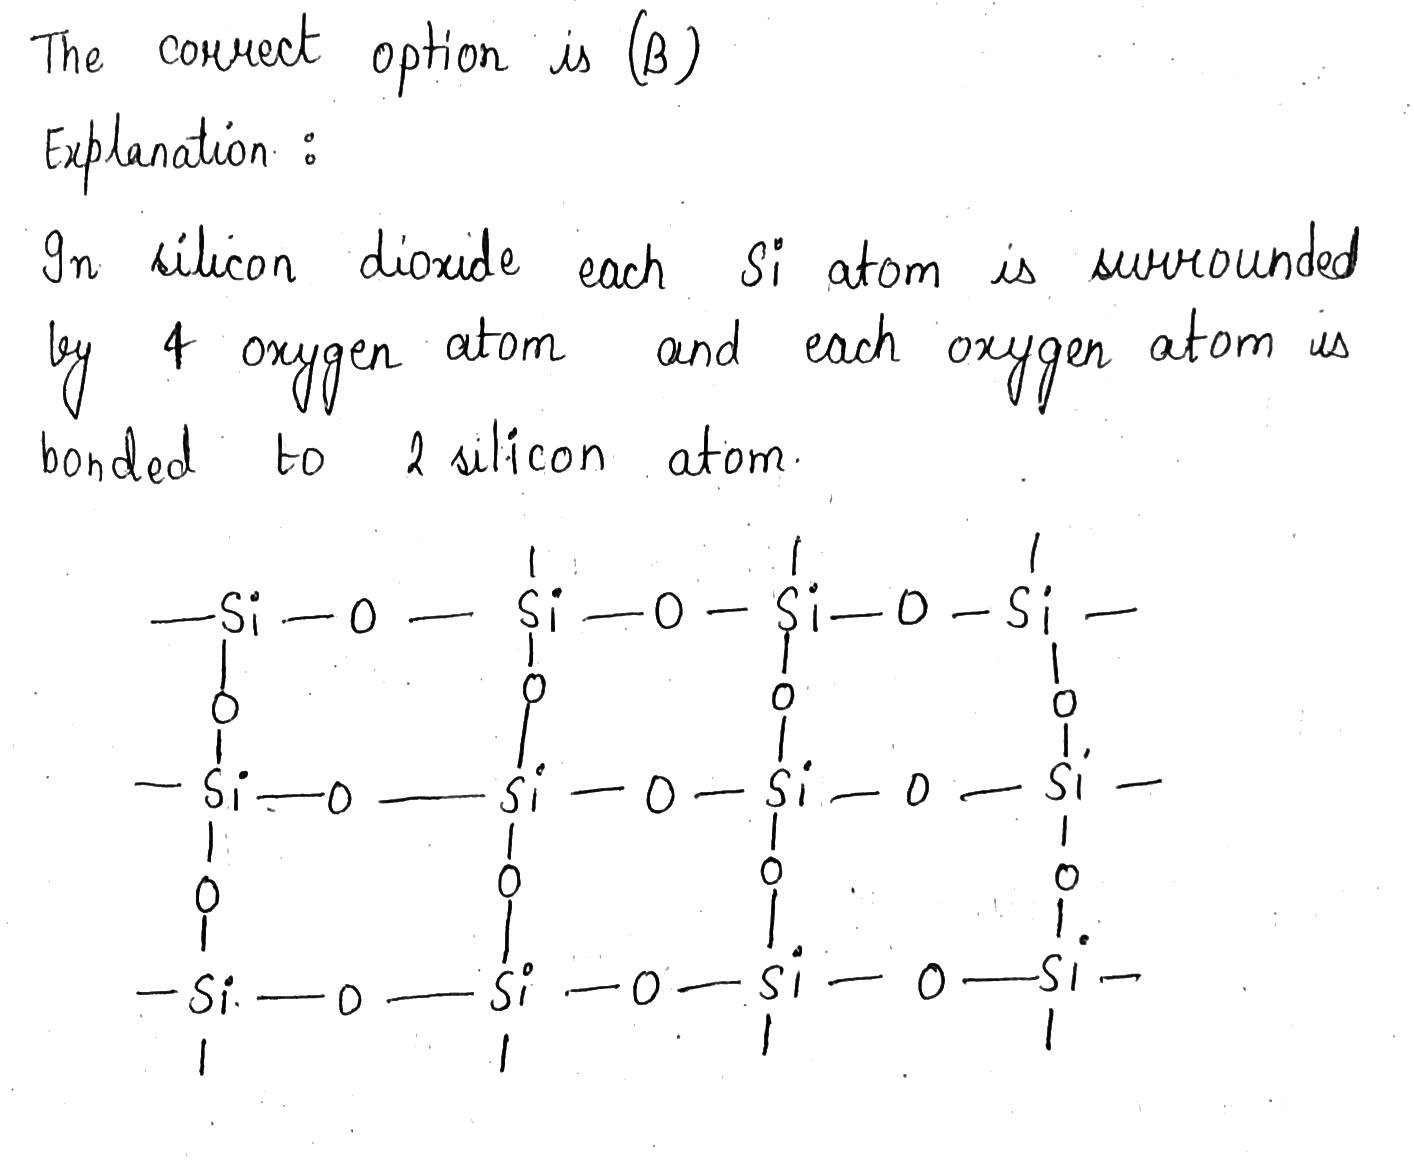 The correct option is (B)
Explanation :
In silicon dioxide each Si atom is surrounded
by 4 oxygen atom and each oxygen atom is
bonded to 2 silicon atom.
| | |
— Si — O — Si — O — Si — O — Si —
| | | |
O O O O
| | | |
— Si — O — Si — O — Si — O — Si —
| | | |
O O O O
| | | |
— Si — O — Si — O — Si — O — Si —
| | | |